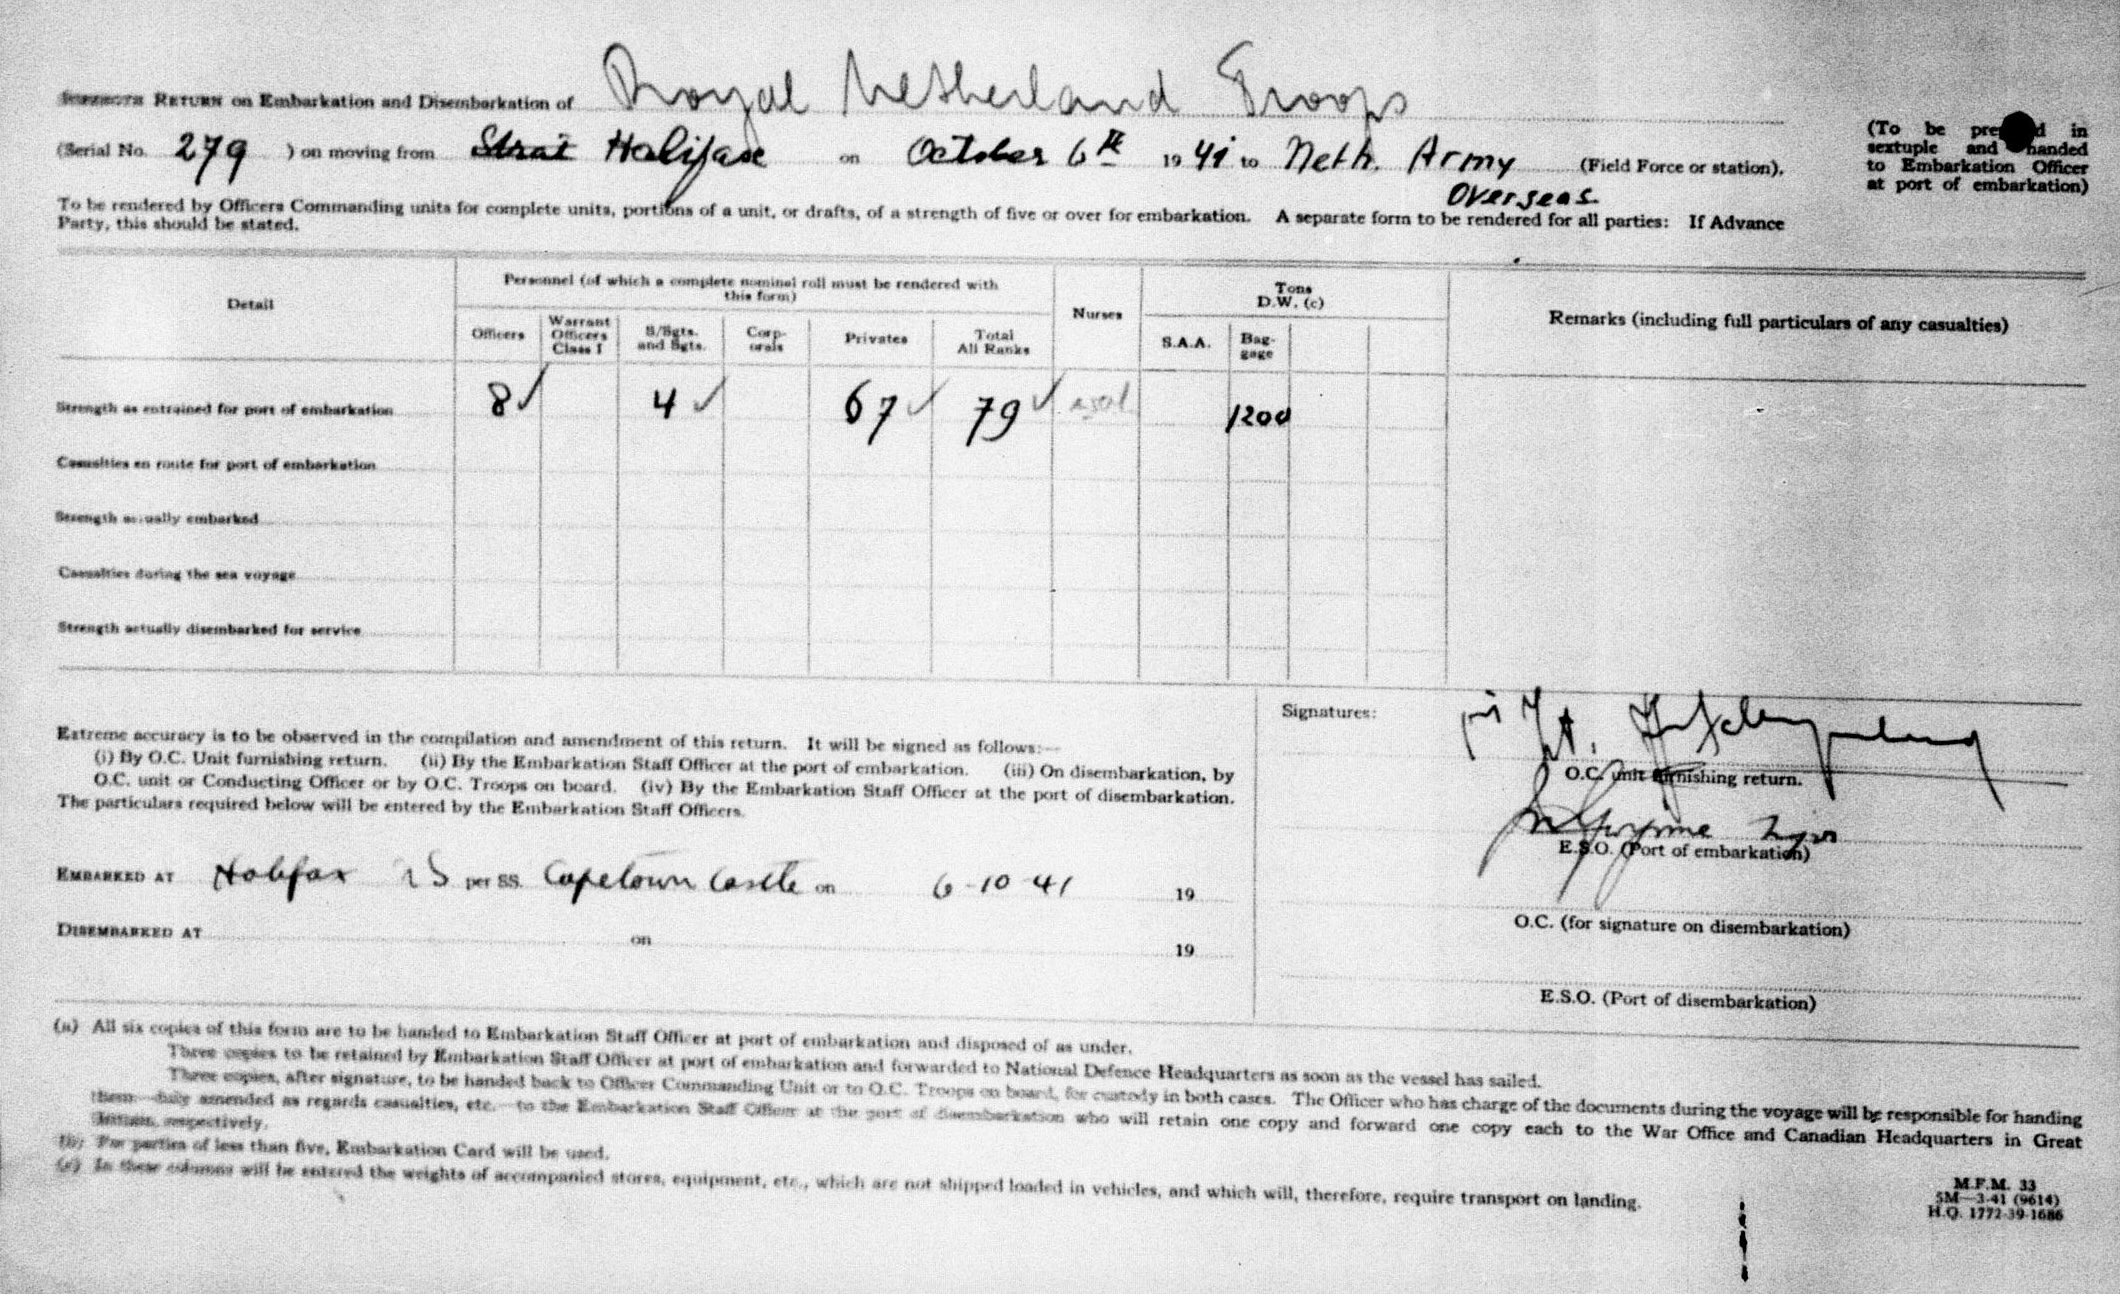 RETURN on Embarkation and Disembarkation of Royal Netherland Troops
(Serial No. 279 ) on moving from Strat Halifax on October 6th 1941 to Neth. Army (Field Force or station).
Overseas.
(To be prepared in
sextuple and handed
to Embarkation Officer
at port of embarkation)
To be rendered by Officers Commanding units for complete units, portions of a unit, or drafts, of a strength of five or over for embarkation. A separate form to be rendered for all parties: If Advance
Party, this should be stated.
Detail
Personnel (of which a complete nominal roll must be rendered with
this form)
Officers
Warrant
Officers
Class I
S/Sgts.
and Sgts.
Corp-
orals
Privates
Total
All Ranks
Nurses
Tons
D.W. (c)
S.A.A.
Bag-
gage
Remarks (including full particulars of any casualties)
Strength as entrained for port of embarkation 8 ✓ 4 ✓ 67 ✓ 79 ✓ 1200
Casualties en route for port of embarkation
Strength actually embarked
Casualties during the sea voyage
Strength actually disembarked for service
Extreme accuracy is to be observed in the compilation and amendment of this return. It will be signed as follows:—
(i) By O.C. Unit furnishing return. (ii) By the Embarkation Staff Officer at the port of embarkation. (iii) On disembarkation, by
O.C. unit or Conducting Officer or by O.C. Troops on board. (iv) By the Embarkation Staff Officer at the port of disembarkation.
The particulars required below will be entered by the Embarkation Staff Officers.
EMBARKED AT Halifax NS per SS. Capetown Castle on 6-10-41 19
DISEMBARKED AT on 19
Signatures:
O.C. unit furnishing return.
E.S.O. (Port of embarkation)
O.C. (for signature on disembarkation)
E.S.O. (Port of disembarkation)
(a) All six copies of this form are to be handed to Embarkation Staff Officer at port of embarkation and disposed of as under.
Three copies to be retained by Embarkation Staff Officer at port of embarkation and forwarded to National Defence Headquarters as soon as the vessel has sailed.
Three copies, after signature, to be handed back to Officer Commanding Unit or to O.C. Troops on board, for custody in both cases. The Officer who has charge of the documents during the voyage will be responsible for handing
them—duly amended as regards casualties, etc.—to the Embarkation Staff Officer at the port of disembarkation who will retain one copy and forward one copy each to the War Office and Canadian Headquarters in Great
Britain, respectively.
(b) For parties of less than five, Embarkation Card will be used.
(c) In these columns will be entered the weights of accompanied stores, equipment, etc., which are not shipped loaded in vehicles, and which will, therefore, require transport on landing.
M.F.M. 33
5M—3-41 (9614)
H.Q. 1772-39-1686